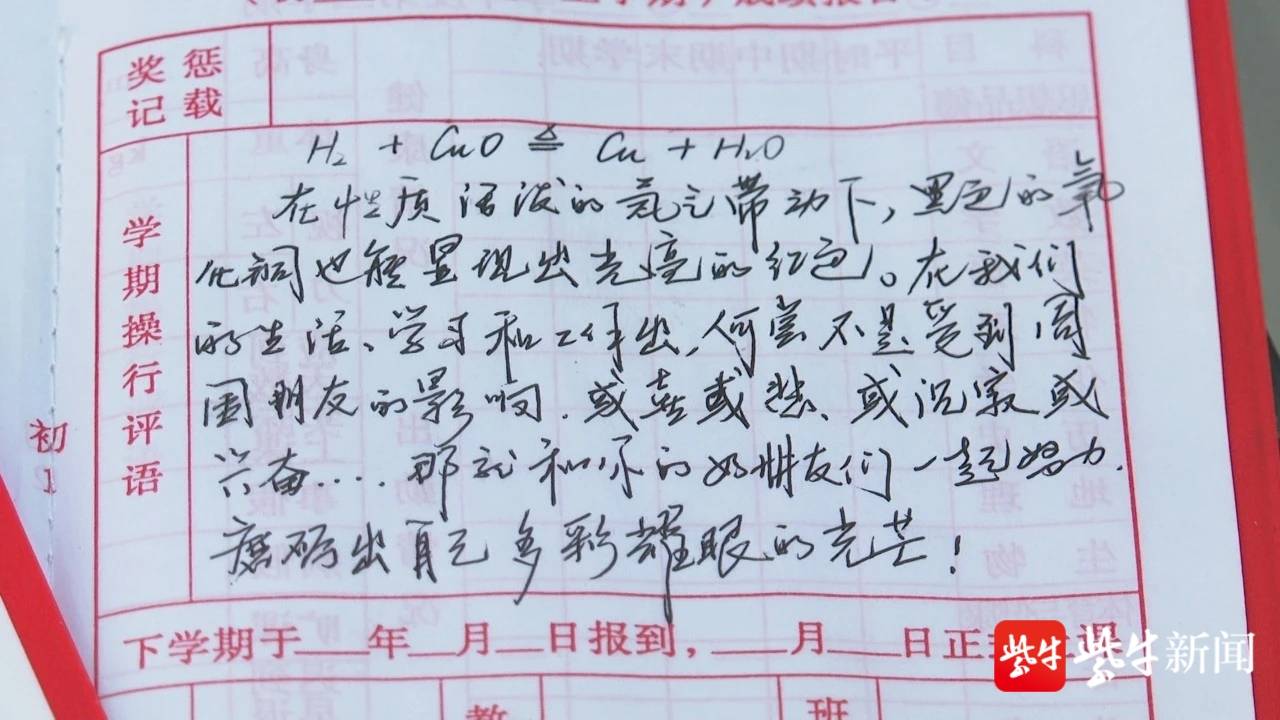 学期，成绩报告
奖惩
记载
学期操行评语
H₂ + CuO ≜ Cu + H₂O
在性质活泼的氢气带动下，黑色的氧
化铜也能显现出光亮的红色。在我们
的生活、学习和工作出，何尝不是受到周
围朋友的影响．或喜或悲、或沉寂或
兴奋．．．．那就和你的好朋友们一起努力．
磨砺出自己多彩耀眼的光芒！
初1
下学期于___年___月___日报到，___月___日正
课
紫牛 紫牛新闻
教
班